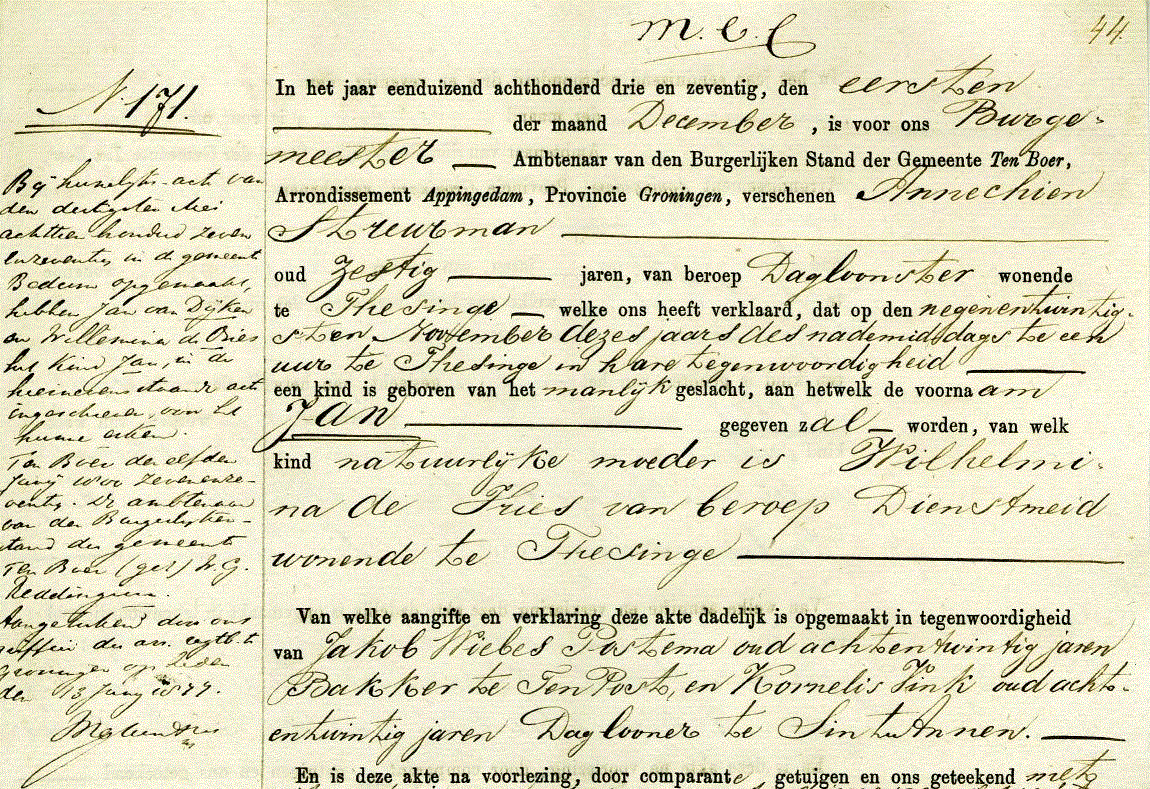 M.C.C
44
N. 171.
Bij huwelijks-acte van
den dertigsten Mei
achttien honderd zeven
enzeventig in de gemeente
Bedum opgemaakt,
hebben Jan van Dijken
en Willemina de Vries
het kind Jan, in de
acte
ingeschreven, voor het
hunne erkend.
Ten Boer den elfden
Junij 1800 zevenenze-
ventig. De ambtenaar
van den Burgerlijken-
stand der gemeente
Ten Boer (get)
door ons
griffier der arr. regtb. te
Groningen op heden
den 13 Junij 1877.
In het jaar eenduizend achthonderd drie en zeventig, den eersten
der maand December, is voor ons Burge-
meester Ambtenaar van den Burgerlijken Stand der Gemeente Ten Boer,
Arrondissement Appingedam, Provincie Groningen, verschenen Annechien
Streurman
oud zestig jaren, van beroep Dagloonster wonende
te Thesinge welke ons heeft verklaard, dat op den negenentwintig-
sten November dezes jaars des nademiddags te een
uur te Thesinge in hare tegenwoordigheid
een kind is geboren van het manlijk geslacht, aan hetwelk de voornaam
Jan gegeven zal worden, van welk
kind natuurlijke moeder is Wilhelmi-
na de Fries van beroep Dienstmeid
wonende te Thesinge
Van welke aangifte en verklaring deze akte dadelijk is opgemaakt in tegenwoordigheid
van Jakob Wiebes Postema oud achtentwintig jaren
Bakker te Ten Post, en Kornelis Vink oud acht-
entwintig jaren Daglooner te Sint Annen.
En is deze akte na voorlezing, door comparante getuigen en ons geteekend met